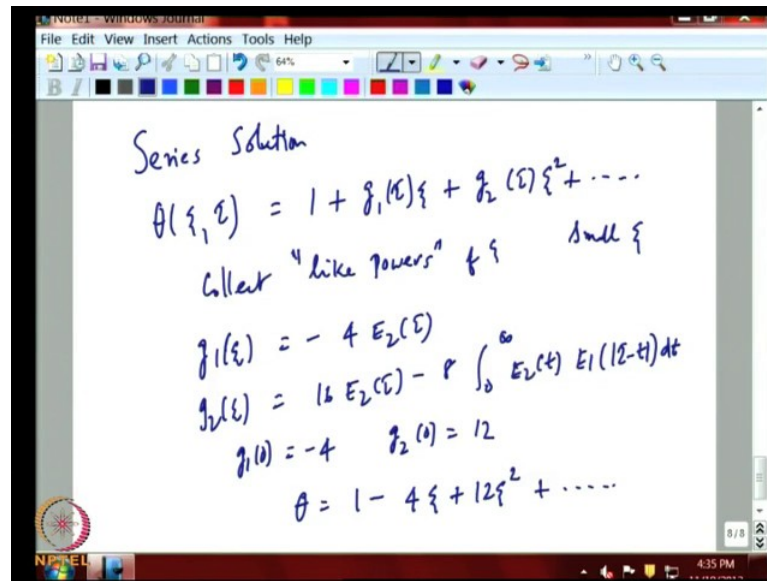 Note1 - Windows Journal
File Edit View Insert Actions Tools Help
64%
B I
Series Solution
θ(ξ, τ) = 1 + g₁(τ)ξ + g₂(τ)ξ² + ....
Collect "like Powers" of ξ small ξ
g₁(ξ) = - 4 E₂(τ)
g₂(ξ) = 16 E₂(τ) - 8 ∫₀^∞ E₂(t) E₁(|τ-t|) dt
g₁(0) = -4 g₂(0) = 12
θ = 1 - 4ξ + 12ξ² + .....
8/8
NPTEL
4:35 PM